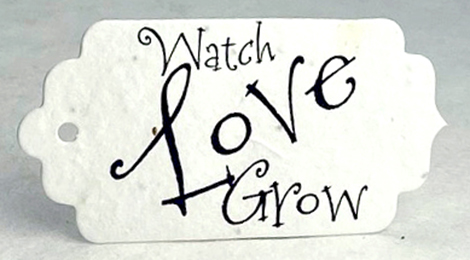 Watch
Love
Grow